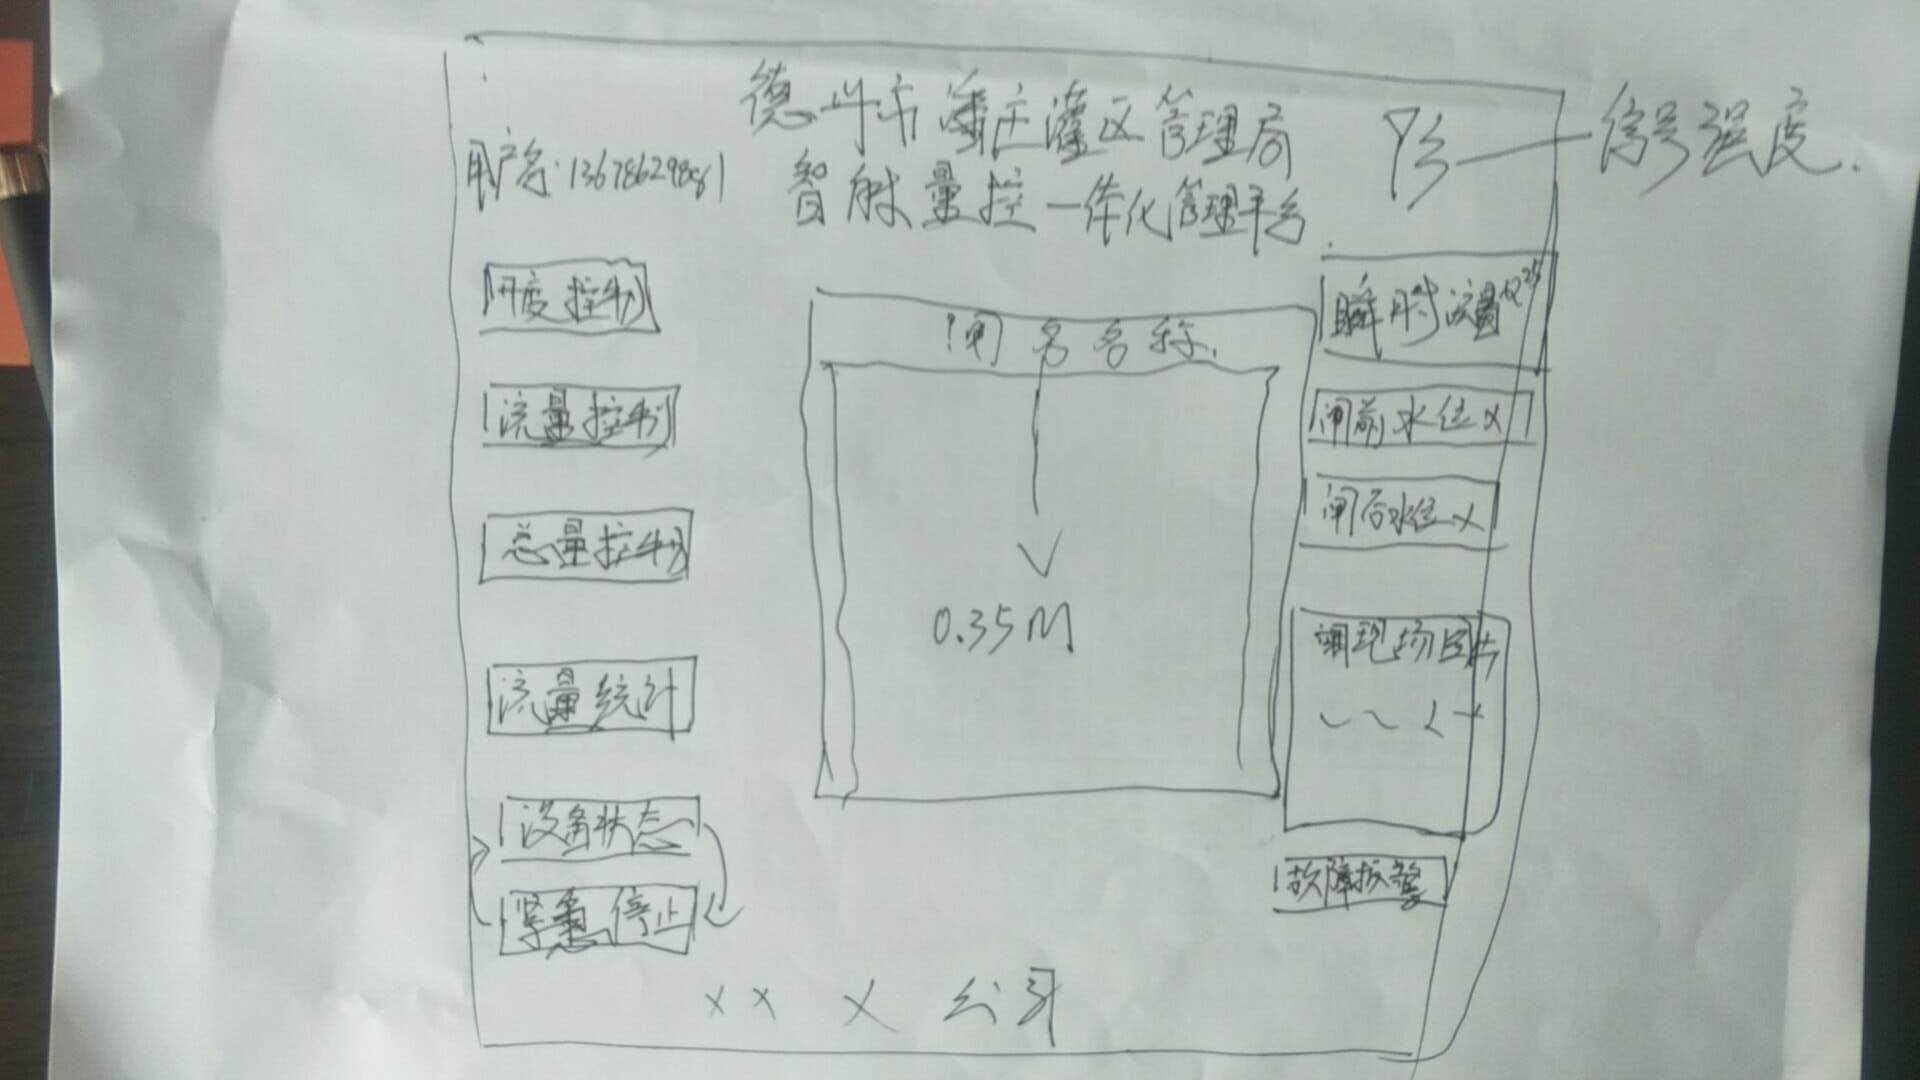 德州市潘庄灌区管理局
智能量控一体化管理平台
信号强度.
用户名:13678629861
开度控制
流量控制
总量控制
流量统计
设备状态
紧急停止
闸名名称.
0.35M
瞬时流量
闸前水位 X
闸后水位 X
调现场图片
故障报警
X X X 公司